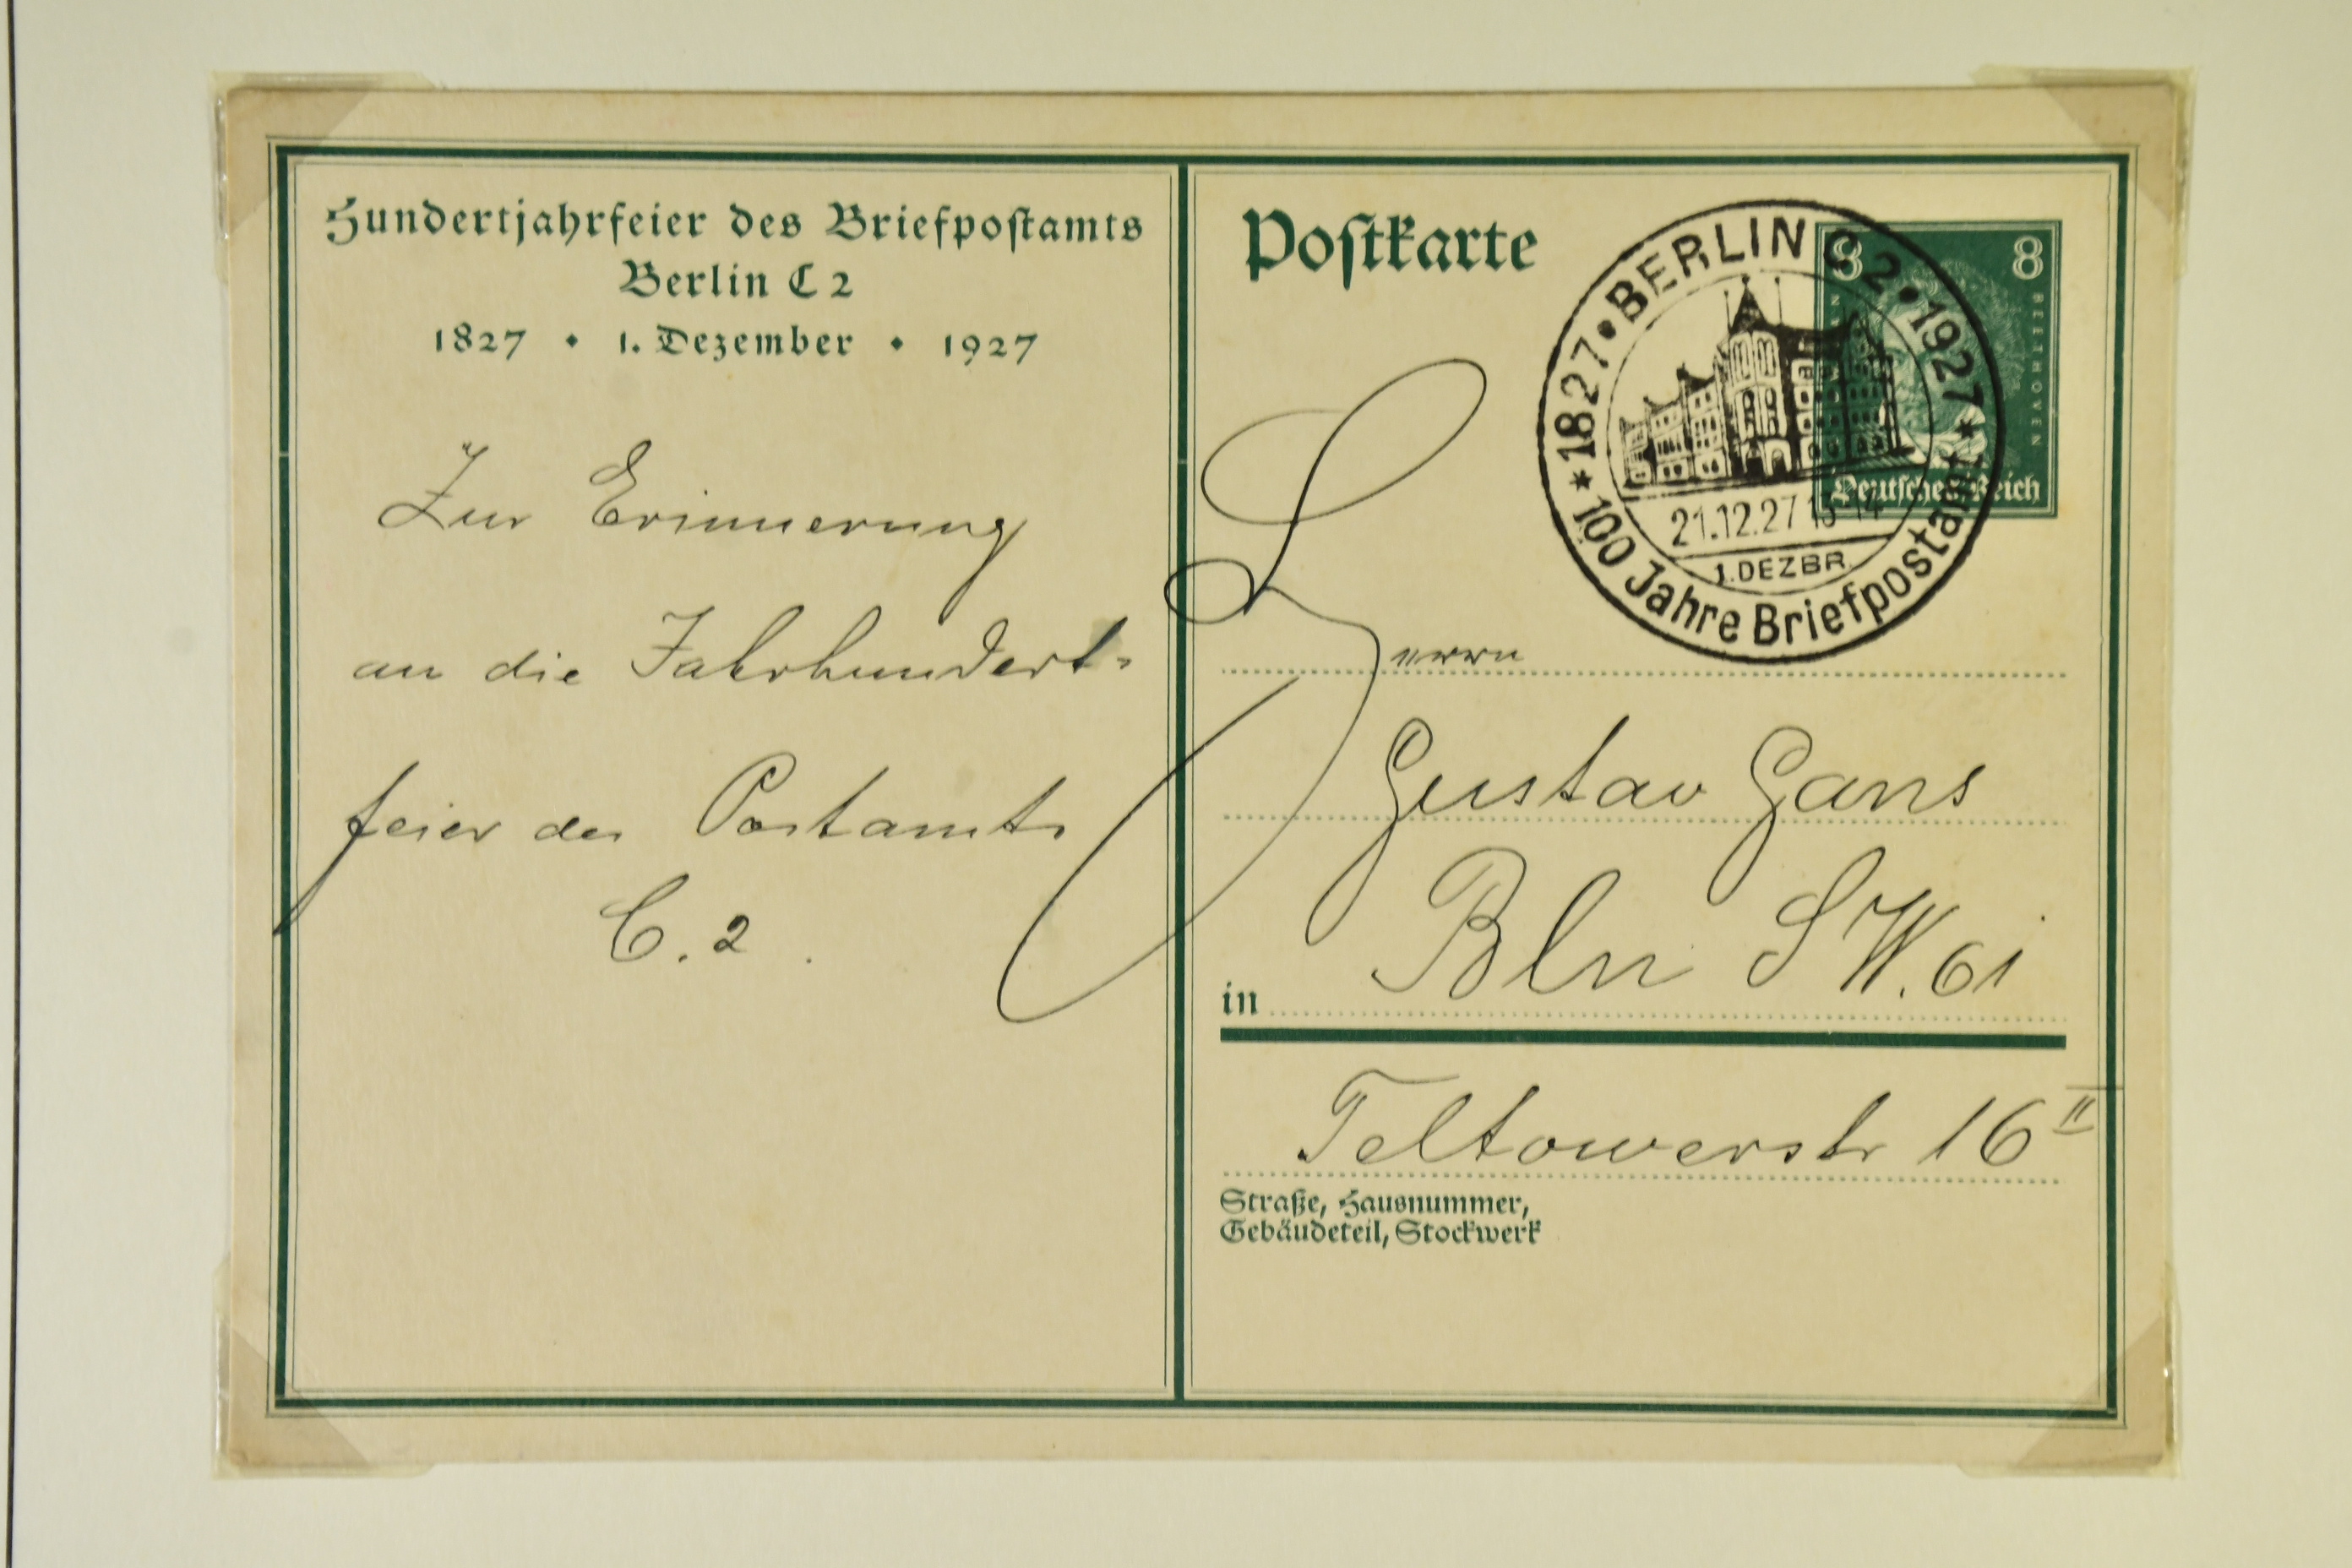 Hundertjahrfeier des Briefpostamts
Berlin C 2
1827 • 1. Dezember • 1927
Zur Erinnerung
an die Jahrhundert-
feier des Postamts
C. 2.
Postkarte
1827 • BERLIN C 2 • 1927
21.12.27 13-14
1. DEZBR.
* 100 Jahre Briefpostamt *
8 8
BEETHOVEN
Deutsches Reich
Herrn
Gustav Gans
in Bln SW. 61
Teltowerstr 16 II
Straße, Hausnummer,
Gebäudeteil, Stockwerk